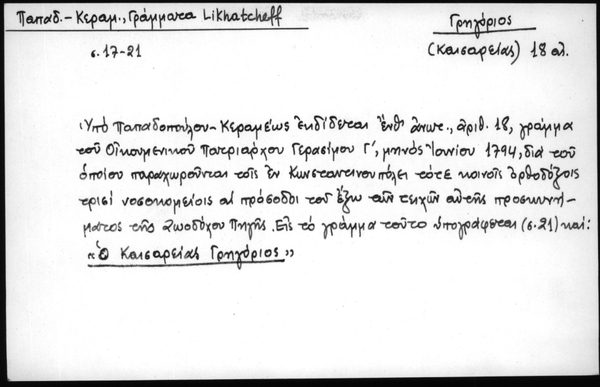 Παπαδ.-Κεραμ., Γράμματα Likhatcheff
Γρηγόριος
σ. 17-21
(Καισαρείας) 18 αι.
Ὑπό Παπαδοπούλου-Κεραμέως ἐκδίδεται ἔνθ' ἀνωτ., ἀριθ. 18, γράμμα
τοῦ Οἰκουμενικοῦ Πατριάρχου Γερασίμου Γ', μηνός Ἰουνίου 1794, διά τοῦ
ὁποίου παραχωροῦνται τοῖς ἐν Κωνσταντινουπόλει τότε κοινοῖς ὀρθοδόξοις
τρισί νοσοκομείοις αἱ πρόσοδοι τοῦ ἔξω τῶν τειχῶν αὐτῆς προσκυνή-
ματος τῆς Ζωοδόχου Πηγῆς. Εἰς τό γράμμα τοῦτο ὑπογράφεται (σ. 21) καί:
«Ὁ Καισαρείας Γρηγόριος»